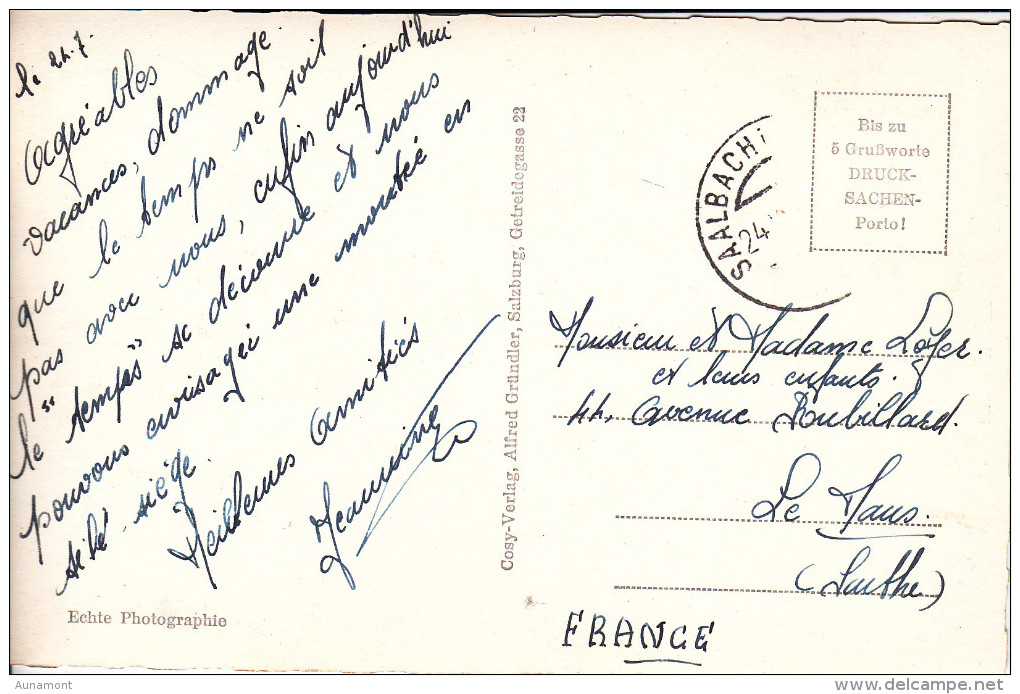 le 24.7.
Agréables
vacances, dommage
que le temps ne soit
pas avec nous, enfin aujourd'hui
le "temps" se découvre et nous
pouvons envisager une montée en
télé siège.
Meilleures amitiés
Jeannine
Echte Photographie
Cosy-Verlag, Alfred Gründler, Salzburg, Getreidegasse 22
SAALBACH
24
Bis zu
5 Grußworte
DRUCK-
SACHEN-
Porto!
Monsieur et Madame Loyer.
et leurs enfants.
44, avenue Roubillard.
Le Mans.
(Sarthe)
FRANCE
Aunamont
delcampe.net